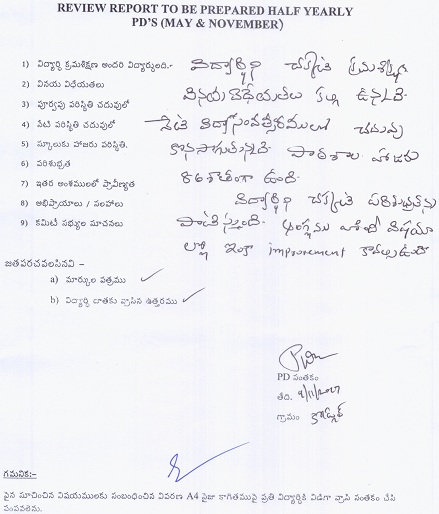 REVIEW REPORT TO BE PREPARED HALF YEARLY
PD'S (MAY & NOVEMBER)
1) విద్యార్థి క్రమశిక్షణ అందరి విద్యార్థులది.- విద్యార్థిని చక్కటి క్రమశిక్షణ
2) వినయ విధేయతలు వినయ విధేయతలు కల్గి ఉన్నది.
3) పూర్వపు పరిస్థితి చదువులో
4) నేటి పరిస్థితి చదువులో నేటి విద్యాసంవత్సరములో చదువు
5) స్కూలుకు హాజరు పరిస్థితి. కొనసాగుతున్నది. పాఠశాల హాజరు
6) పరిశుభ్రత 86 శాతంగా ఉంది.
7) ఇతర అంశములలో ప్రావీణ్యత
8) అభిప్రాయాలు / సలహాలు విద్యార్థిని చక్కటి పరిశుభ్రతను
9) కమిటీ సభ్యుల సూచనలు పాటిస్తుంది. ఆంగ్లము హిందీ విషయా
ల్లో ఇంకా improvement కావల్సి ఉంది
జతపరచవలసినవి –
a) మార్కుల పత్రము
b) విద్యార్థి దాతకు వ్రాసిన ఉత్తరము
PD సంతకం
తేది. 9/11/2017
గ్రామం
గమనిక:-
పైన సూచించిన విషయములకు సంబంధించిన వివరణ A4 సైజు కాగితముపై ప్రతి విద్యార్థికి విడిగా వ్రాసి సంతకం చేసి
పంపవలెను.